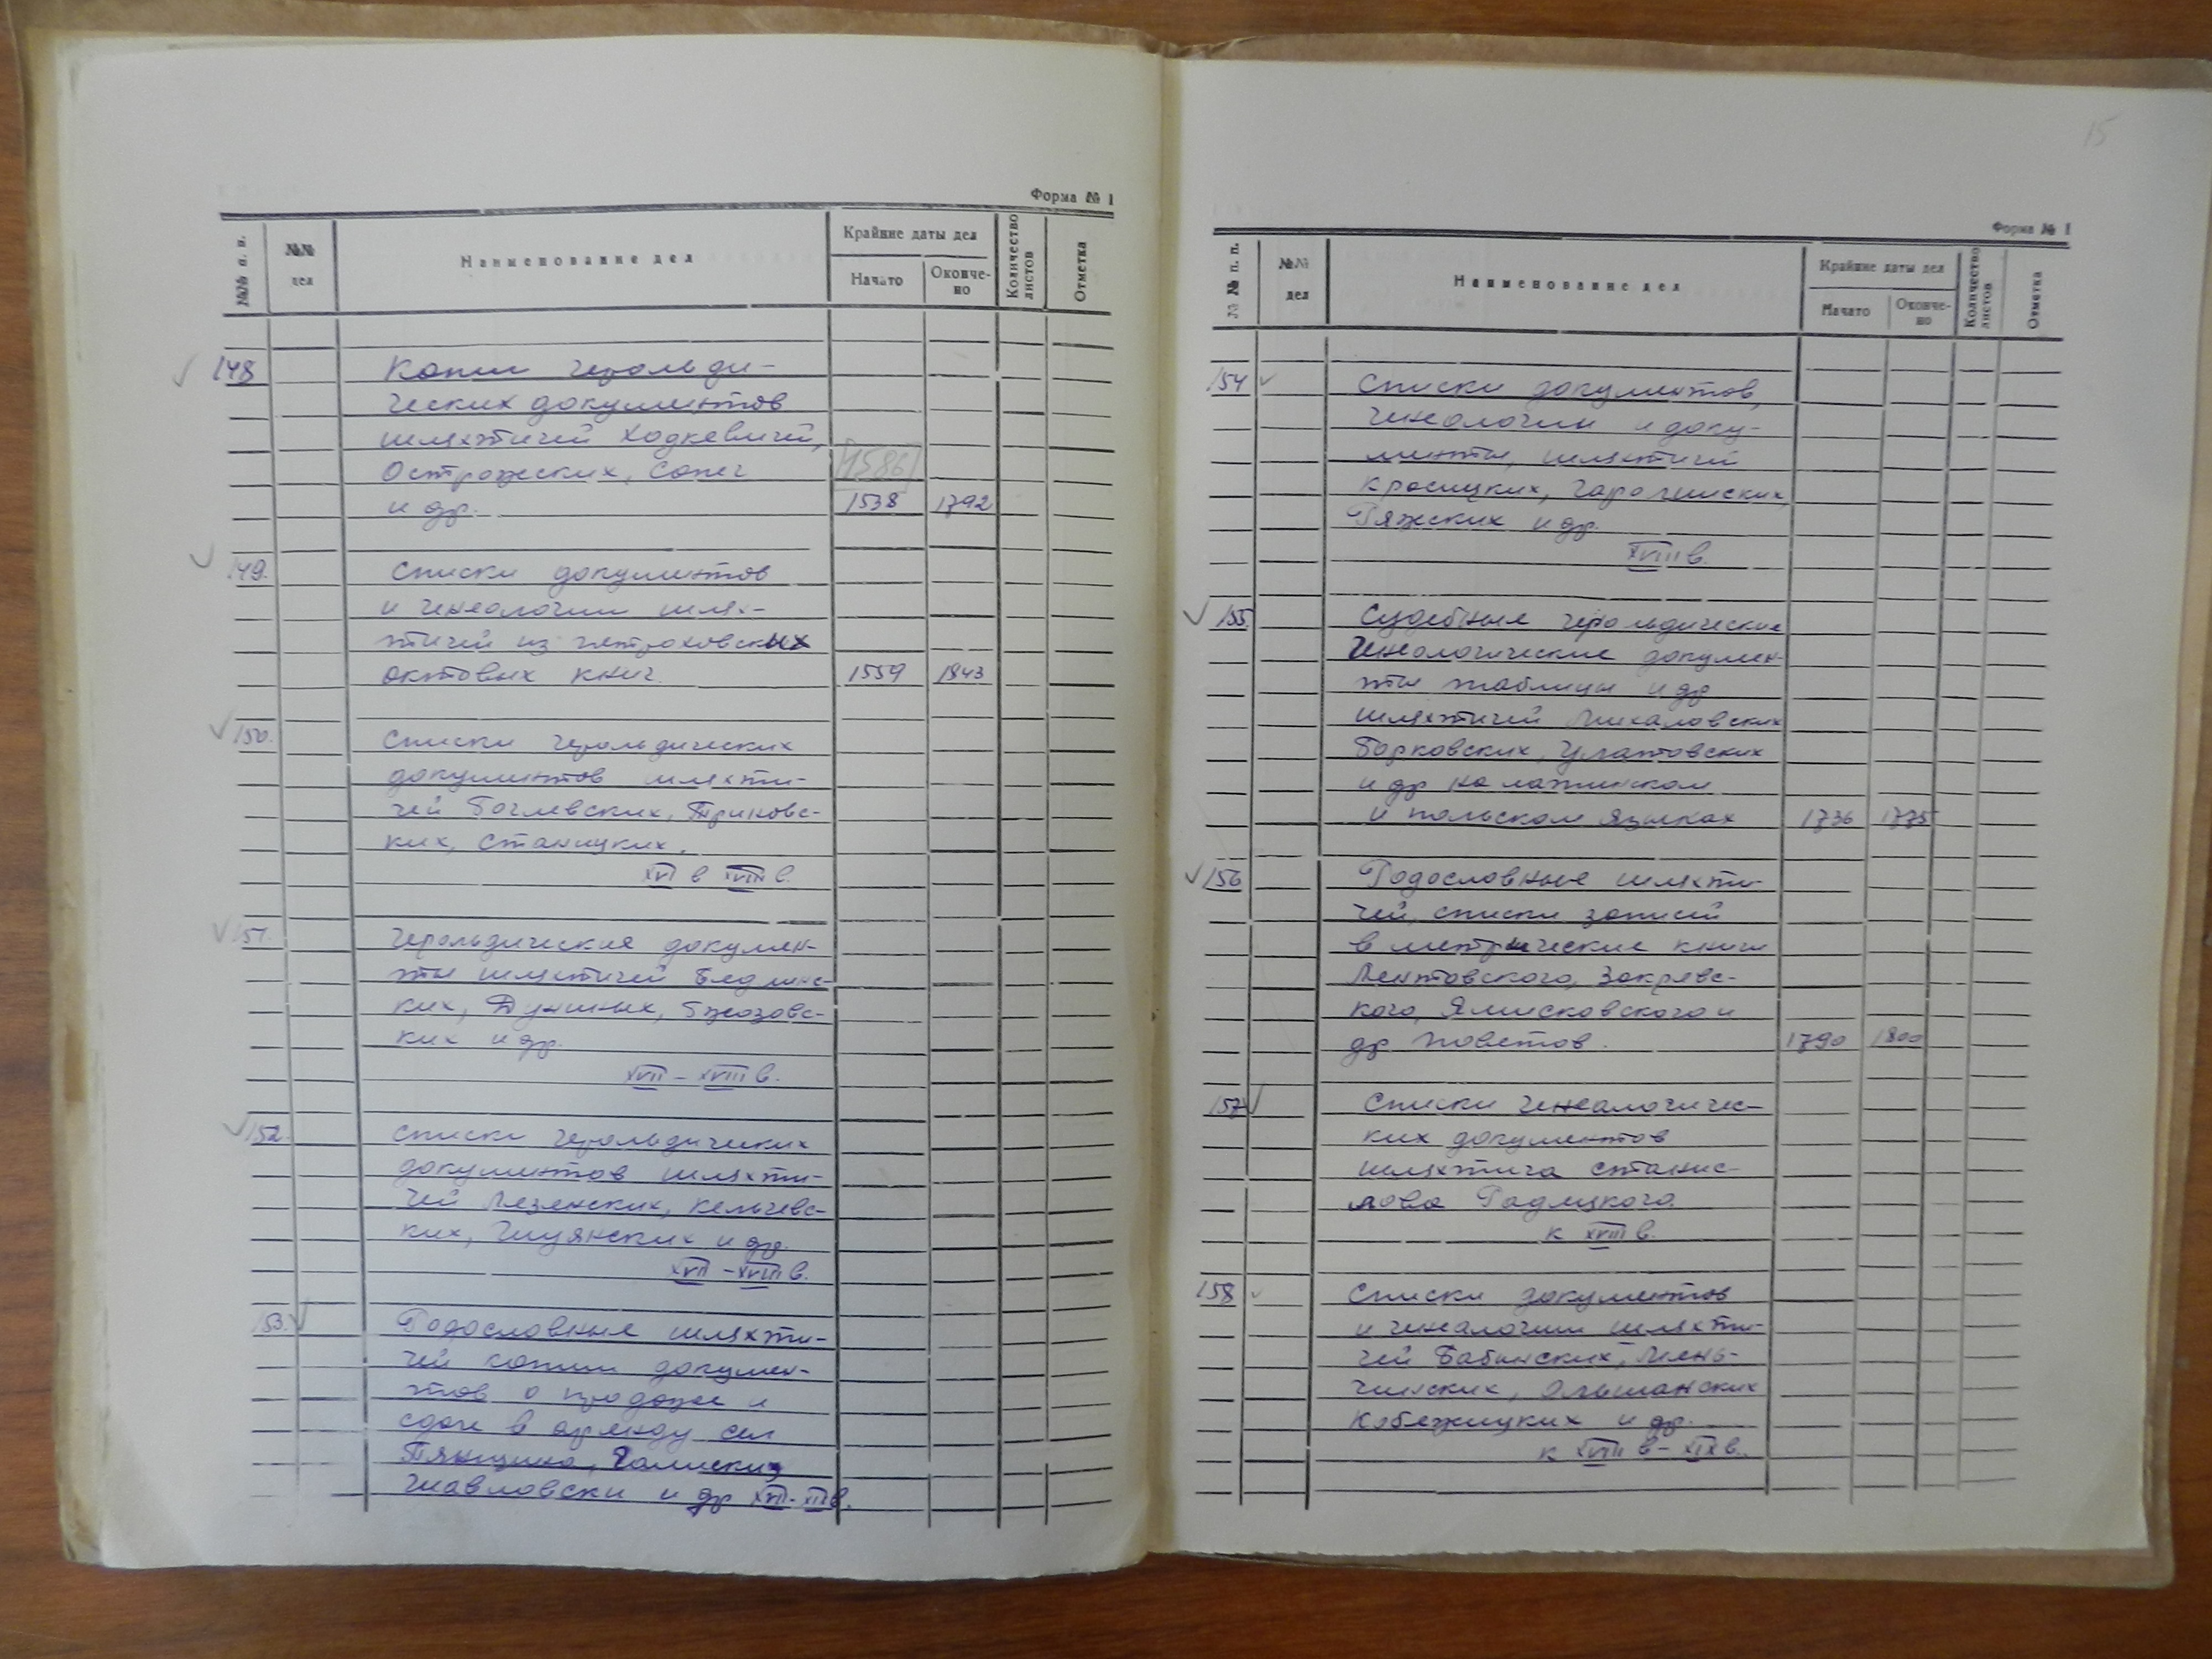 Форма № 1
№№ п. п.
№№ дел
Наименование дел
Крайние даты дел
Начато
Окончено
Количество листов
Отметка
148
Копии герольди-
ческих документов
шляхтичей Ходкевичей,
Острожских, Сапег
[1586]
и др. 1538 1792
149.
Списки документов
и генеалогии шлях-
тичей из петроковских
актовых книг. 1559 1843
150.
Списки герольдических
документов шляхти-
чей
ких, Станицких.
XVI в XVIII в.
151.
Герольдические докумен-
ты шляхтичей
ких,
ких и др.
XVII – XVIII в.
152.
Списки герольдических
документов шляхти-
чей Кельчевс-
ких, и др.
XVII – XVIII в.
153.
Родословные шляхти-
чей копии докумен-
тов о продаже и
сдаче в аренду сел
и др XVII - XIX в.
15
Форма № 1
№ № п. п.
№№ дел
Наименование дел
Крайние даты дел
Начато
Окончено
Количество листов
Отметка
154
Списки документов,
генеалогии и доку-
менты, шляхтичей
Красицких,
Ряжских и др.
XVIII в.
155
Судебные герольдические
генеалогические докумен-
ты таблицы и др
шляхтичей Михаловских
Борковских,
и др на латинском
и польском языках 1736 1775
156
Родословные шляхти-
чей, списки записей
в метрические книги
Закревс-
кого, и
др поветов. 1790 1800
157
Списки генеалогичес-
ких документов
шляхтича Станис-
лава Радецкого.
к XVIII в.
158
Списки документов
и генеалогии шляхти-
чей Бабинских,
Ольшанских
и др.
к XVIII в – XIX в.